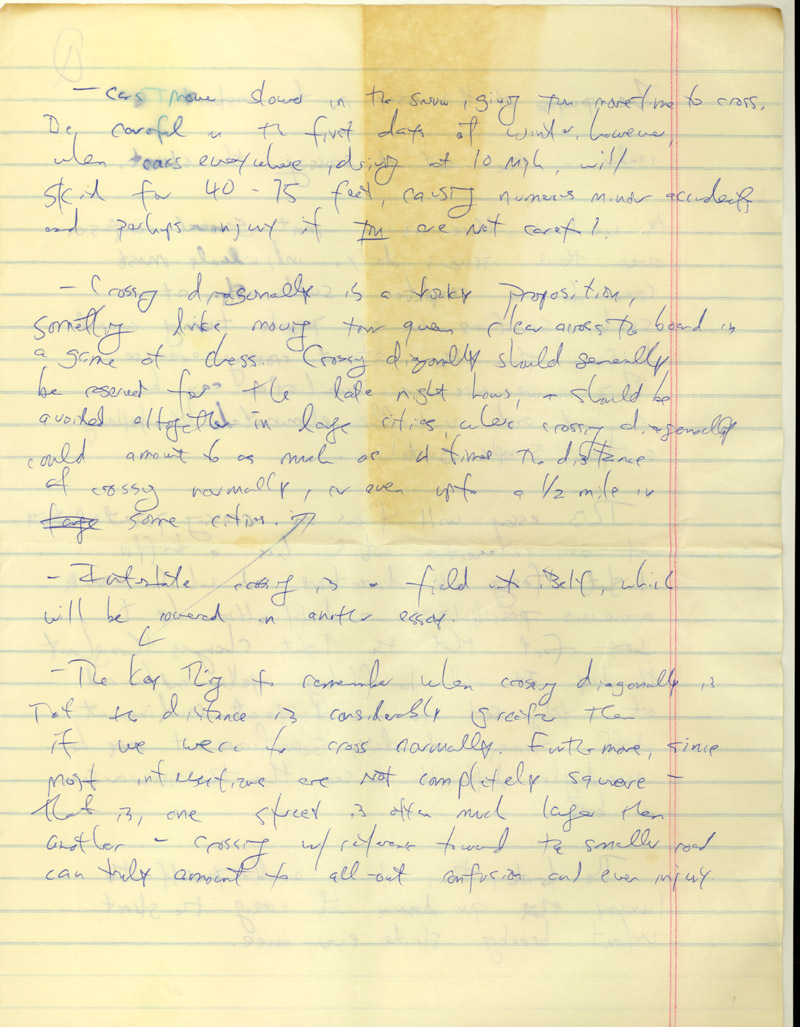 - Cars move slower in the snow, giving you more time to cross.
Be careful in the first days of winter, however,
when cars everywhere, driving at 10 mph, will
skid for 40 - 75 feet, causing numerous minor accidents
and perhaps injury if you are not careful.
- Crossing diagonally is a tricky proposition,
something like moving your queen clear across the board in
a game of chess. Crossing diagonally should generally
be reserved for the late night hours, + should be
avoided altogether in large cities, where crossing diagonally
could amount to as much as 4 times the distance
of crossing normally, or even up to a 1/2 mile in
large some cities.
- Interstate crossing is a field of itself, which
will be covered in another essay.
- The key thing to remember when crossing diagonally is
that the distance is considerably greater than
if we were to cross normally. Furthermore, since
most intersections are not completely square -
that is, one street is often much larger than
another - crossing w/ reference toward the smaller road
can truly amount to all-out confusion and even injury.